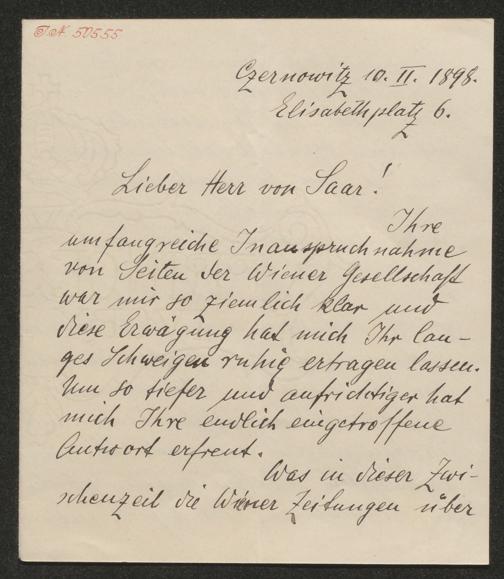 J.N. 50555
Czernowitz 10. II. 1898.
Elisabethplatz 6.
Lieber Herr von Saar!
Ihre
umfangreiche Inanspruchnahme
von Seiten der Wiener Gesellschaft
war mir so ziemlich klar und
diese Erwägung hat mich Ihr lan-
ges Schweigen ruhig ertragen lassen.
Um so tiefer und aufrichtiger hat
mich Ihre endlich eingetroffene
Antwort erfreut.
Was in dieser Zwi-
schenzeit die Wiener Zeitungen über